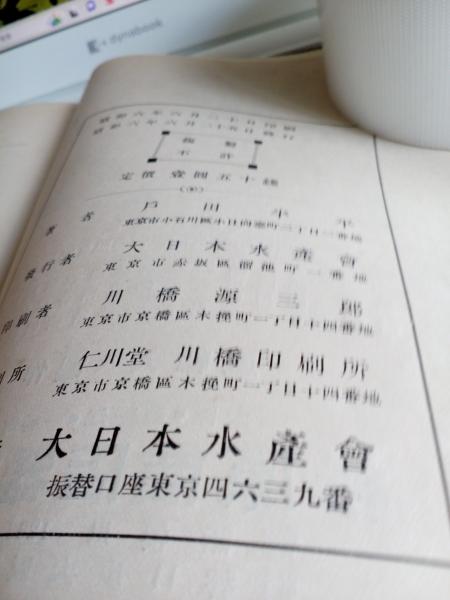 dynabook
昭和六年六月二十日印刷
昭和六年六月二十五日發行
複製
不許
定價 壹圓五十錢
著者 戸川小平
東京市小石川區水日向臺町二丁目一番地
發行者 大日本水產會
東京市赤坂區溜池町一番地
印刷者 川橋源三郎
東京市京橋區木挽町一丁目十四番地
刷所 仁川堂 川橋印刷所
東京市京橋區木挽町一丁目十四番地
大日本水產會
振替口座東京四六三九番